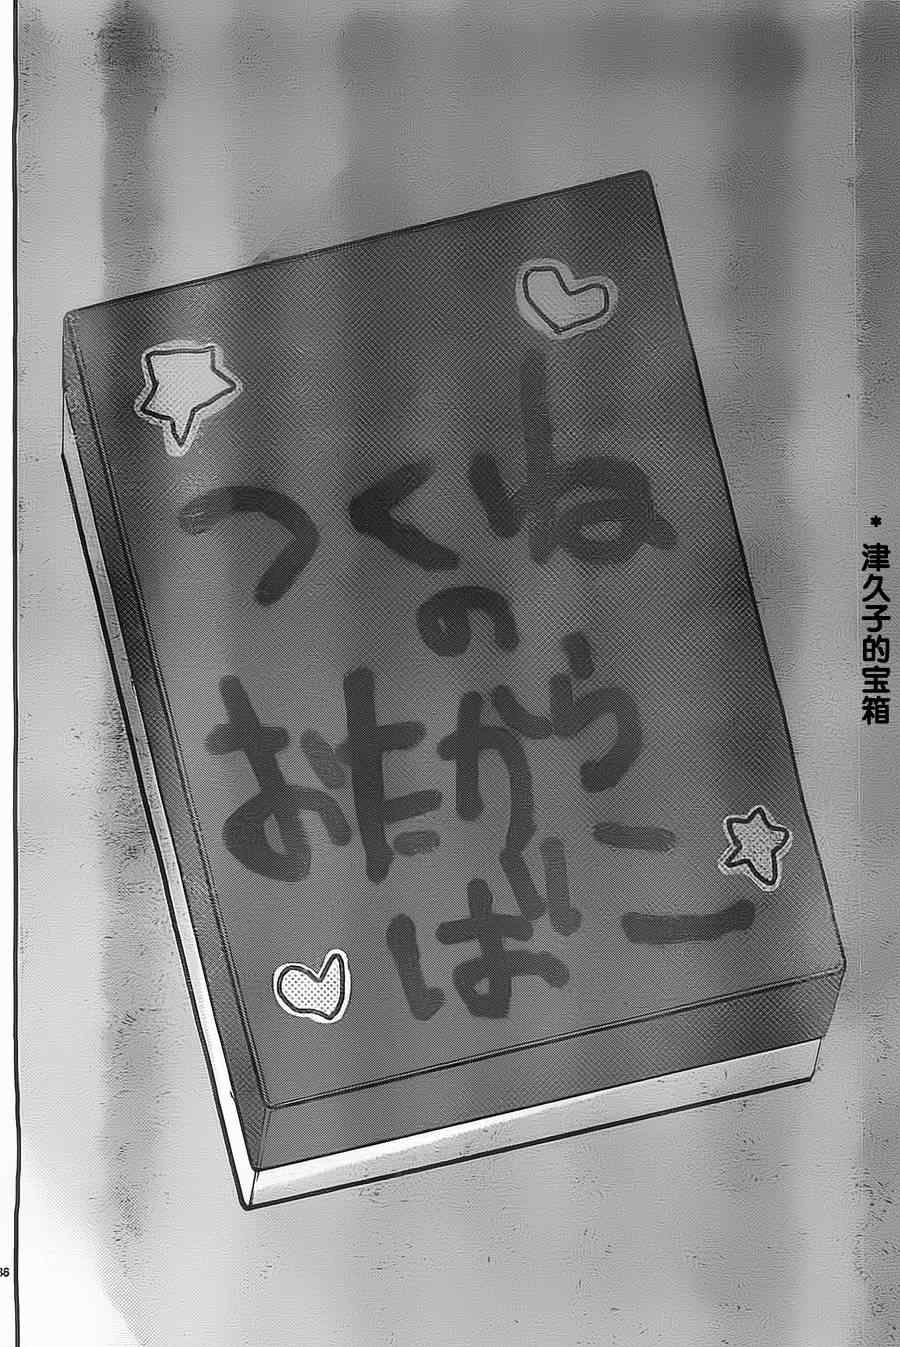 つくね
の
おたからー
ばー
*津久子的宝箱
36